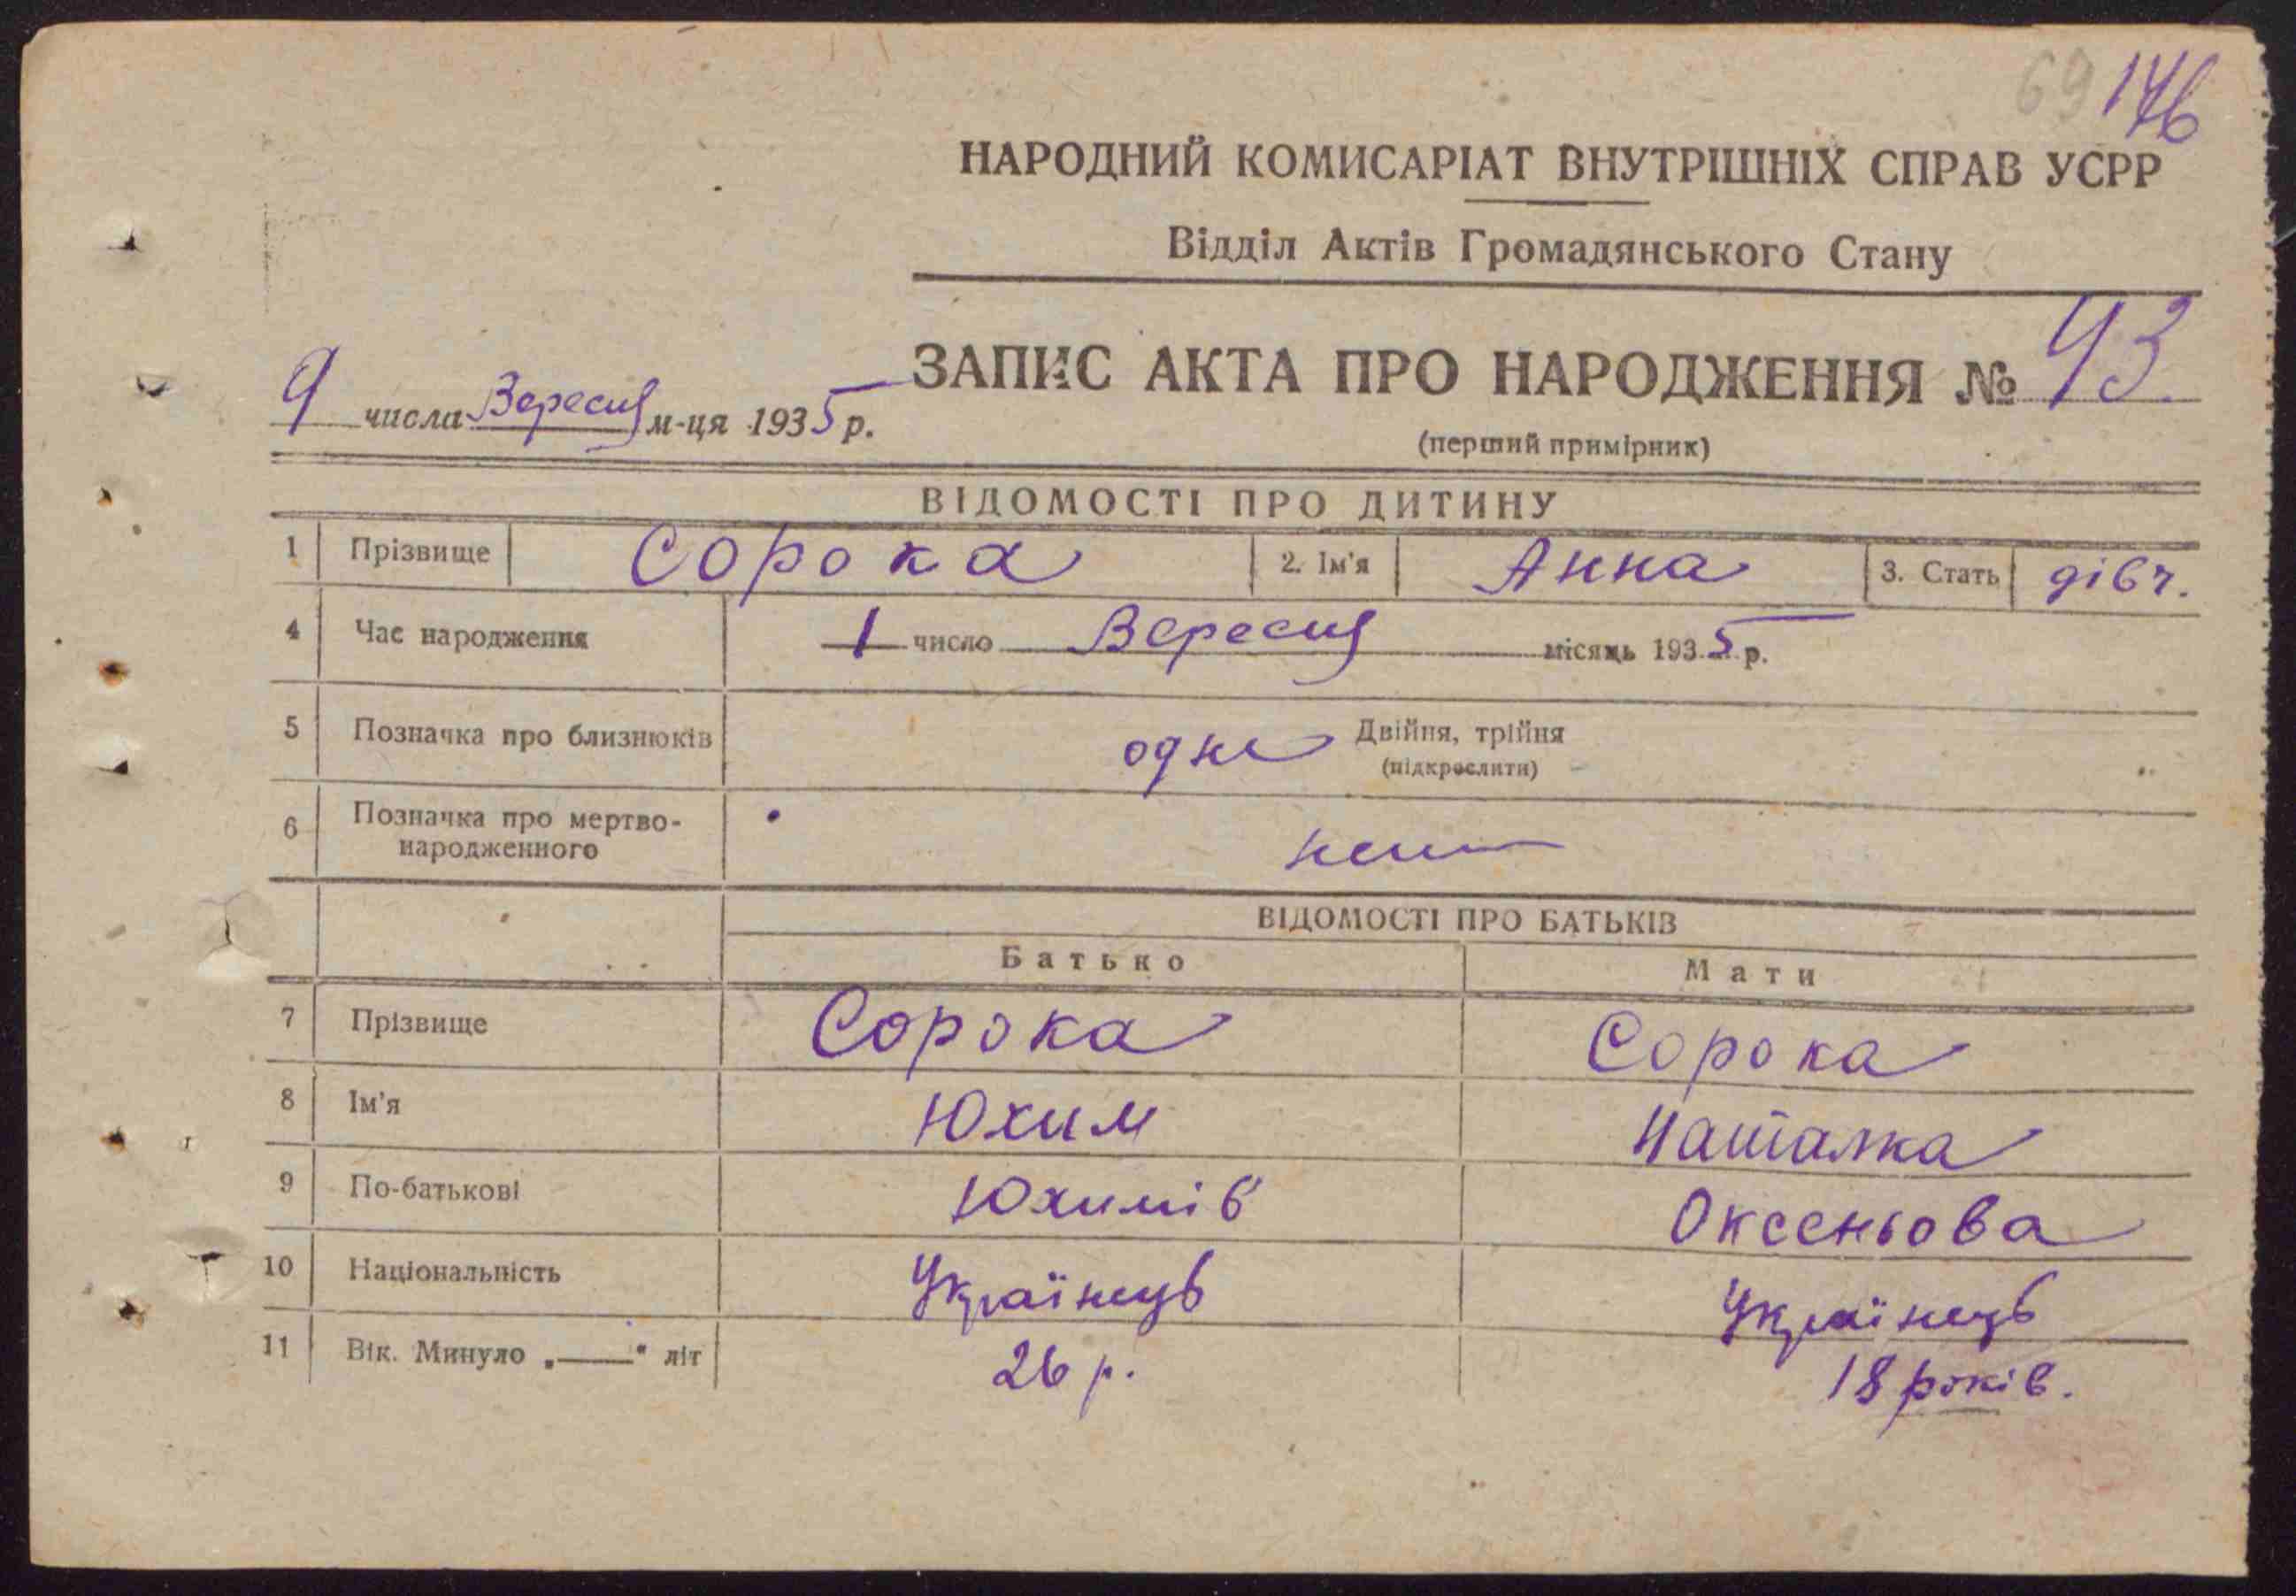 69 146
НАРОДНИЙ КОМИСАРІАТ ВНУТРІШНІХ СПРАВ УСРР
Відділ Актів Громадянського Стану
ЗАПИС АКТА ПРО НАРОДЖЕННЯ № 93.
9 числа Вересня м-ця 1935 р.
(перший примірник)
ВІДОМОСТІ ПРО ДИТИНУ
1 Прізвище Сорока 2. Ім'я Анна 3. Стать дівч.
4 Час народження 1 число Вересня місяць 1935 р.
5 Позначка про близнюків одне Двійня, трійня
(підкреслити)
6 Позначка про мертво-
народженного
ВІДОМОСТІ ПРО БАТЬКІВ
Батько Мати
7 Прізвище Сорока Сорока
8 Ім'я Юхим Наталка
9 По-батькові Юхимів Оксеньова
10 Національність Українець Українець
11 Вік. Минуло „——" літ 26 р. 18 років.